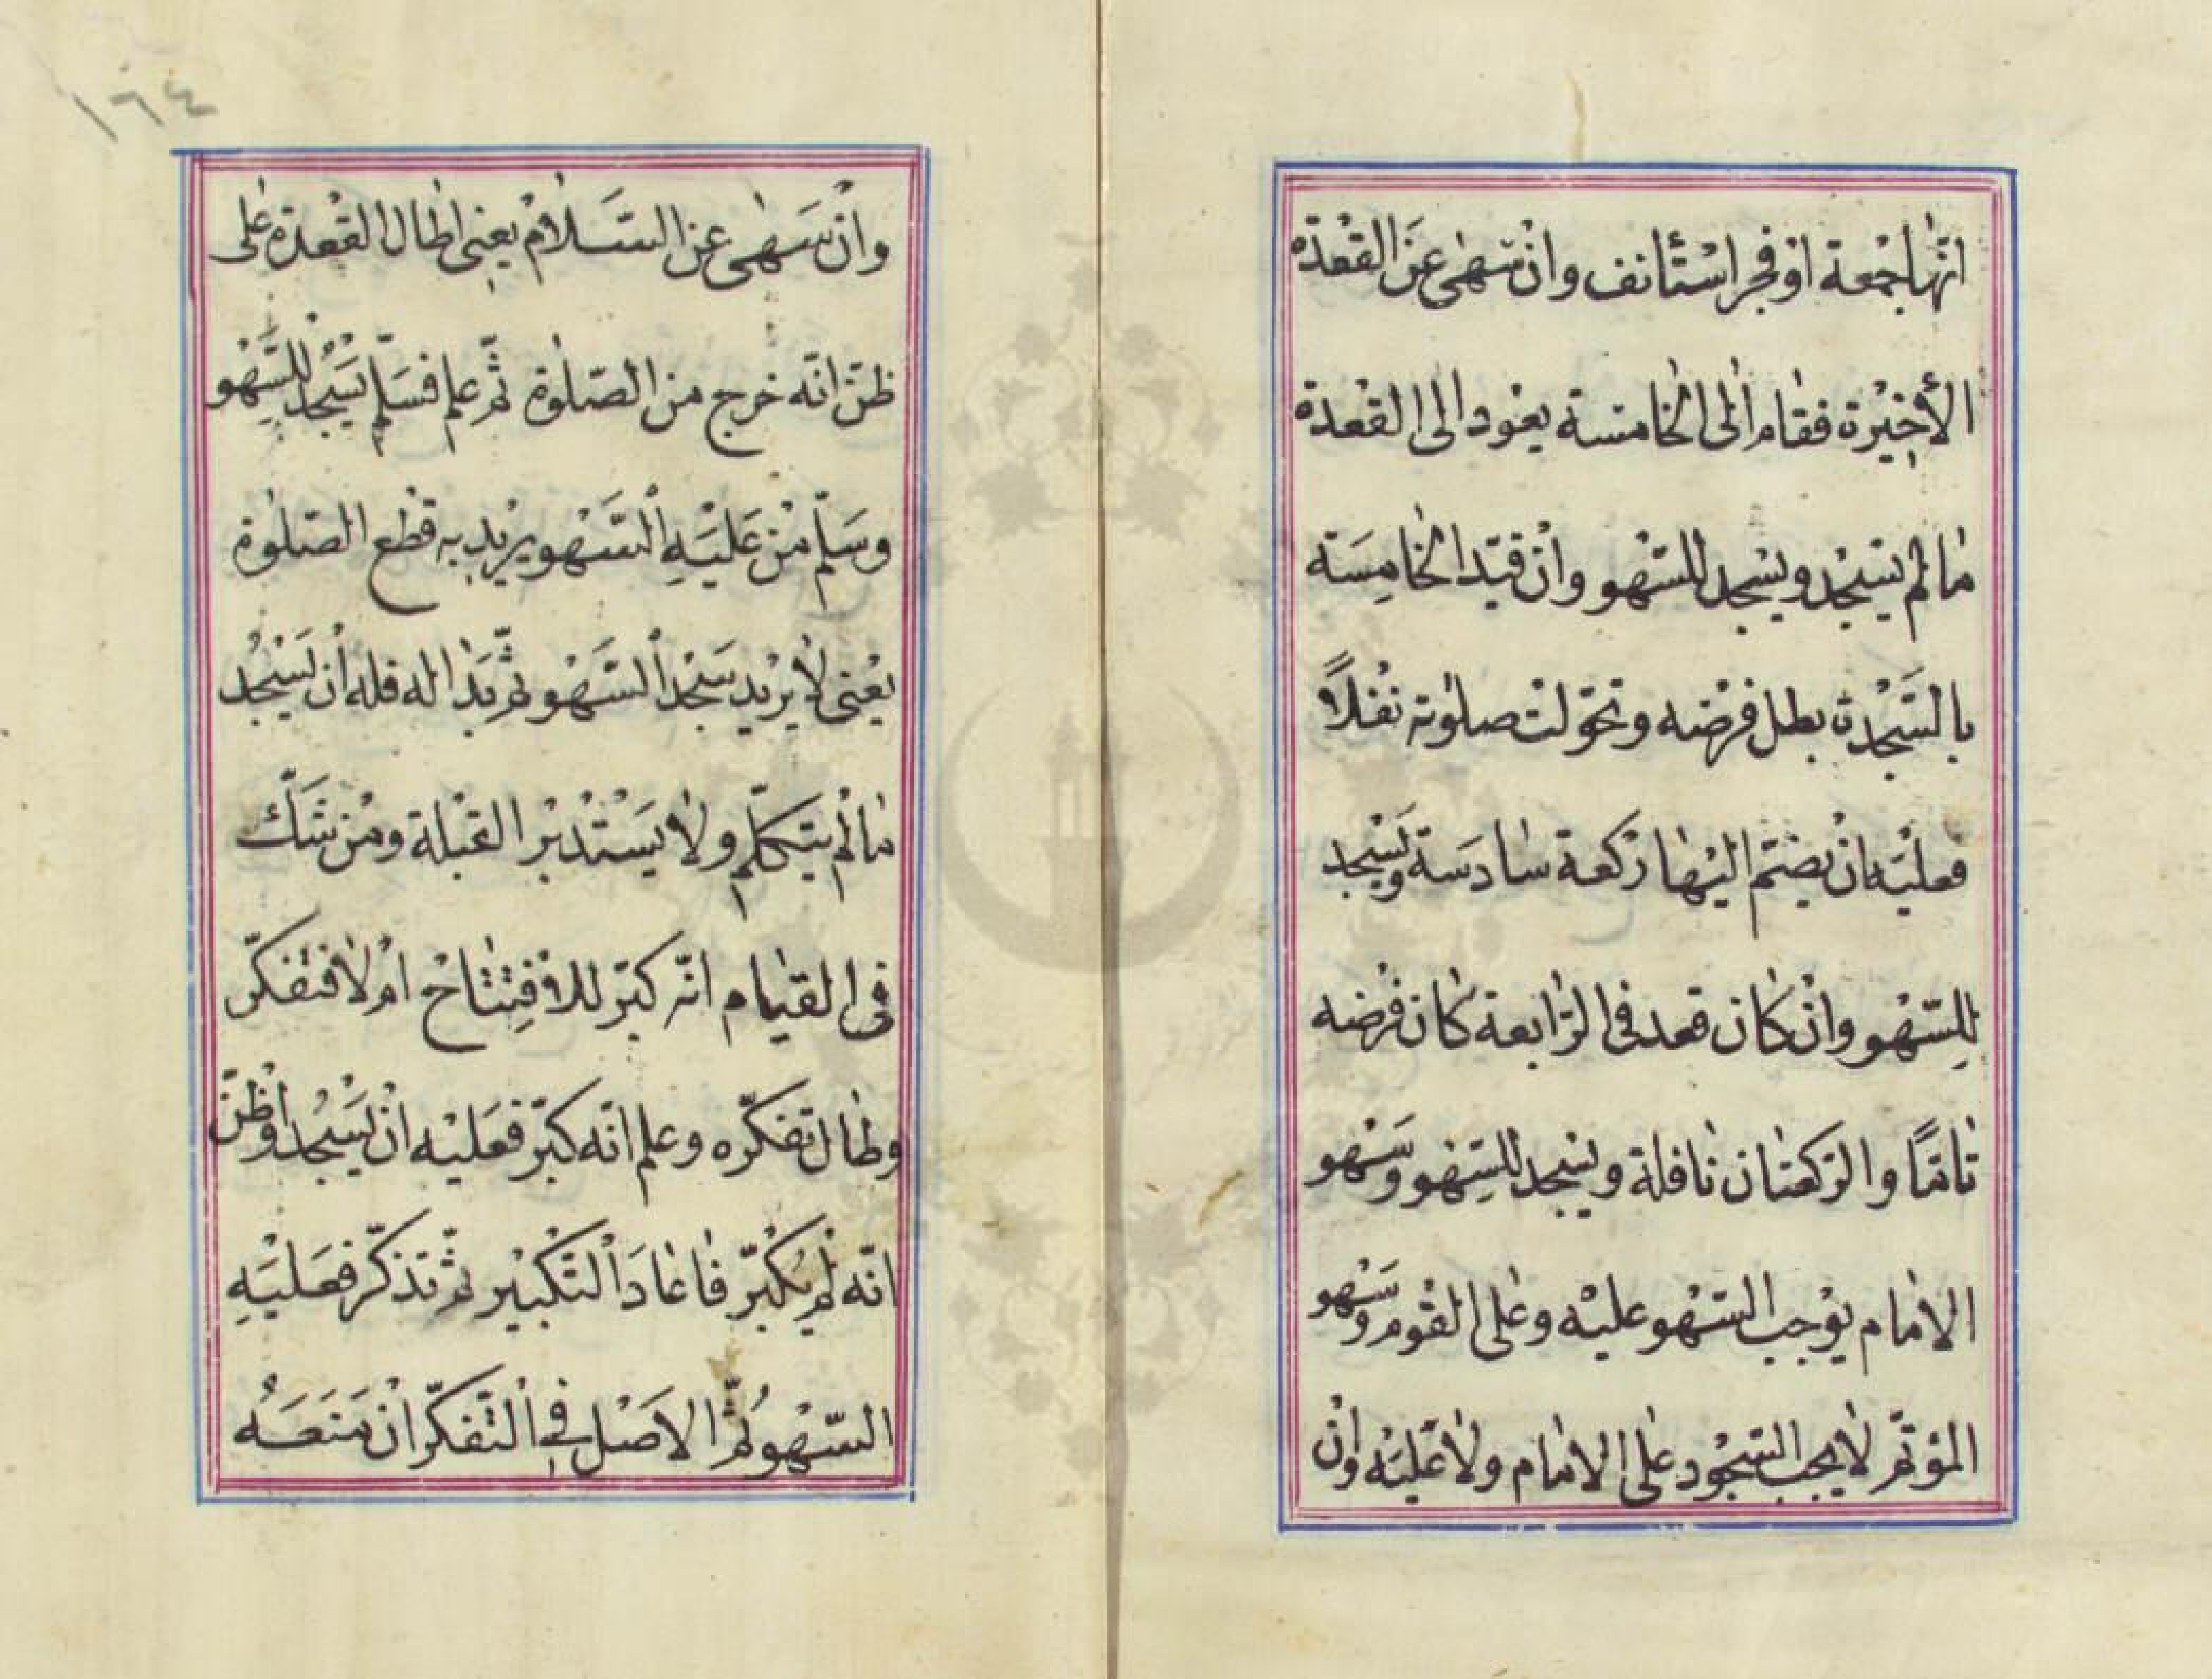 انّها جمْعة اوْ فجر اسْتٔانف وانْ سَهٰى عَن القعْدة
الأخيْرة فقٰام الٰى الخٰامسة يعوْد الى القعْدة
مٰا لم يسْجدْ ويسْجد للسّهْو وانْ قيّد الخٰامِسَة
بالسَّجْدة بطل فرْضه وتحوّلتْ صلوٰته نفْلاً
فعليْه انْ يضمّ اليْهٰا ركعة سٰادسَة ويَسْجد
لِلسّهْو وانْ كٰان قعد فى الرّابعة كٰان فرْضه
تٰامّاً والرّكعتٰان نٰافلة ويسْجد للسّهْو وسَهْو
الامٰام يوْجب السّهْو عليْه وعلٰى القوْم وسَهْو
المؤتمّ لٰا يجب السّجوْد علٰى الامٰام ولٰا عليْه وانْ
١٦٤
وانْ سَهٰى عن السَّلٰامْ يعنى اطٰال القعْدة علٰى
ظنّ انّه خرج من الصّلوٰة ثمّ علم فسَلّم يَسْجُدُ للسَّهْو
وسَلّم مَنْ عَليْهِ السَّهْو يرْيد به قطْع الصّلوٰة
يعْنى لٰا يرْيد سَجْدة السَّهْو ثمّ بَدٰا له فله انْ يَسْجُد
مٰا لْم يتكلّم ولٰا يَسْتدْبرْ القبْلة ومْن شَكّ
فى القيٰام انّه كبّر للافْتِتٰاحْ امْ لٰا فتفكّر
وطٰال تفكّره وعلم انّه كبّر فعَليْه انْ يَسْجُد اوْ ظنّ
انّه لمْ يكْبّر فٰاعٰادَ التّكْبيْر ثمّ تذكّر فعَليْهِ
السّهْو ثمّ الاصْل فى التّفكّر انْ مَنعَهُ